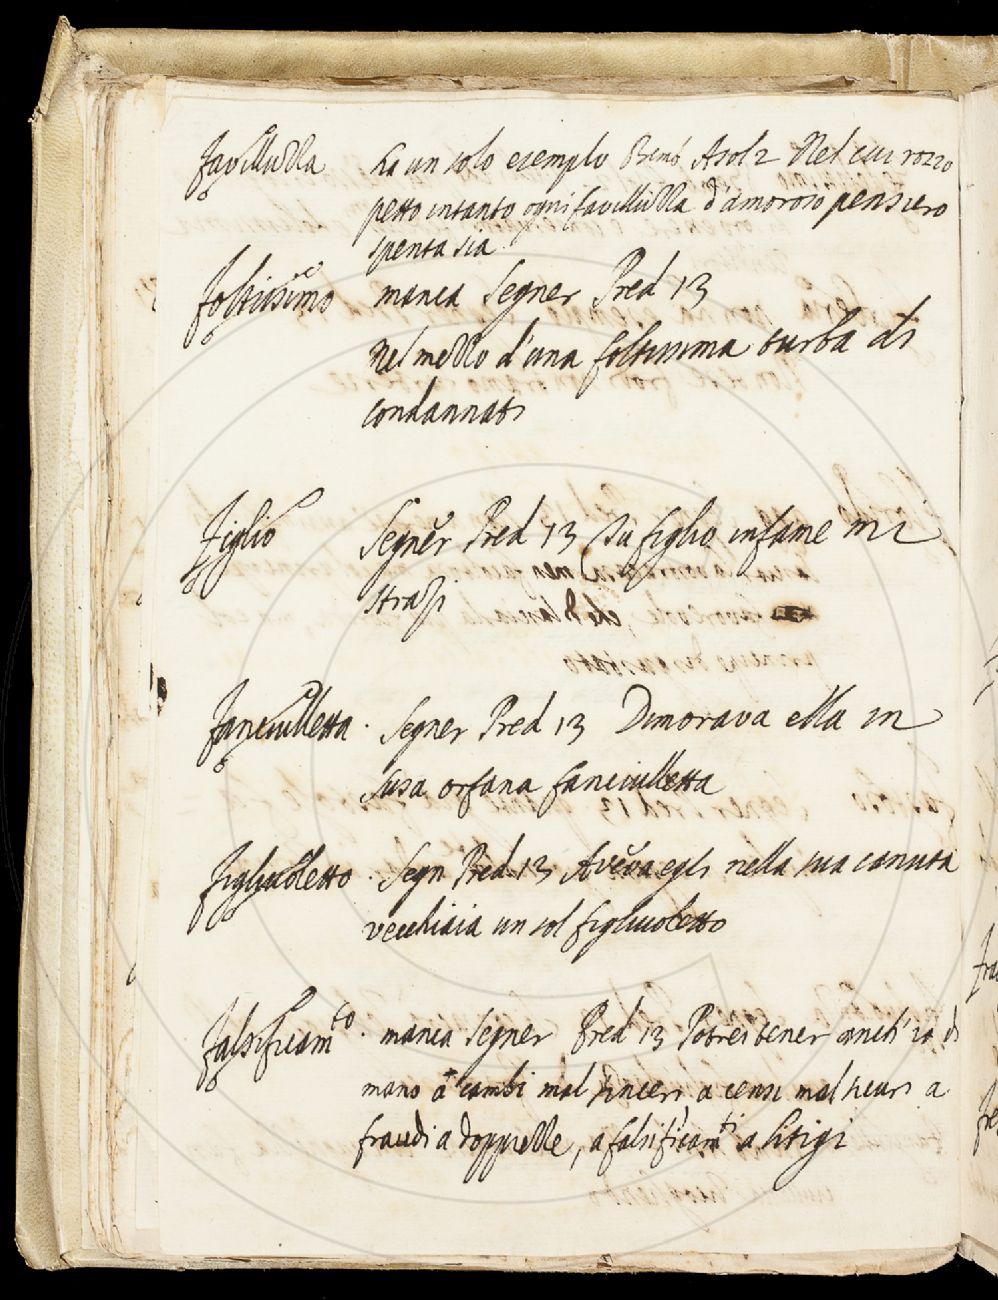 Favilluzza ha un solo esemplo Bemb Asol 2 Nel cui rozzo
petto intanto ogni favilluzza d'amoroso pensiero
spenta sia
Foltissimo manca Segner Pred 13
nel mezzo d'una foltissima turba di
condannati
Figlio Segner Pred 13 Su figlio infame mi
strazi
Fanciulletta. Segner Pred 13 Dimorava ella in
Susa orfana fanciulletta
Figliuoletto. Segn Pred. 13 Aveva egli nella sua canuta
vecchiaia un sol figliuoletto
Falsificamto. manca Segner Pred 13 Potrei tener anch'io di
mano a cambi mal sinceri, a censi mal sicuri a
fraudi a doppiezze, a falsificamti a litigi